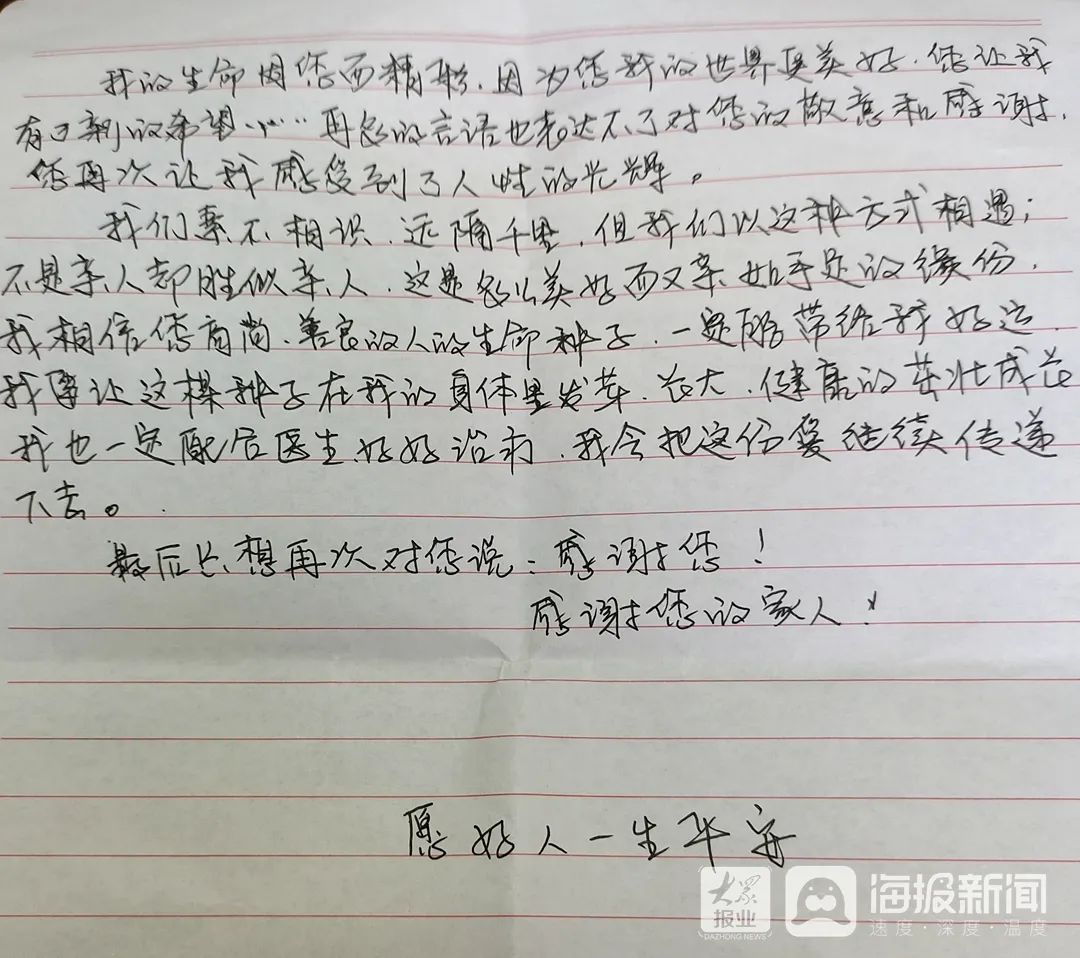 我的生命因您而精彩,因为您我的世界更美好,您让我
有了新的希望……再多的言语也表达不了对您的敬意和感谢,
您再次让我感受到了人性的光辉。
我们素不相识、远隔千里,但我们以这种方式相遇;
不是亲人却胜似亲人,这是多么美好而又亲如手足的缘份,
我相信您高尚、善良的人的生命种子,一定能带给我好运,
我要让这棵种子在我的身体里发芽、长大、健康的茁壮成长
我也一定配合医生好好治疗,我会把这份爱继续传递
下去。
最后只想再次对您说:感谢您!
感谢您的家人!
愿好人一生平安
大众报业
DAZHONG NEWS
海报新闻
速度·深度·温度